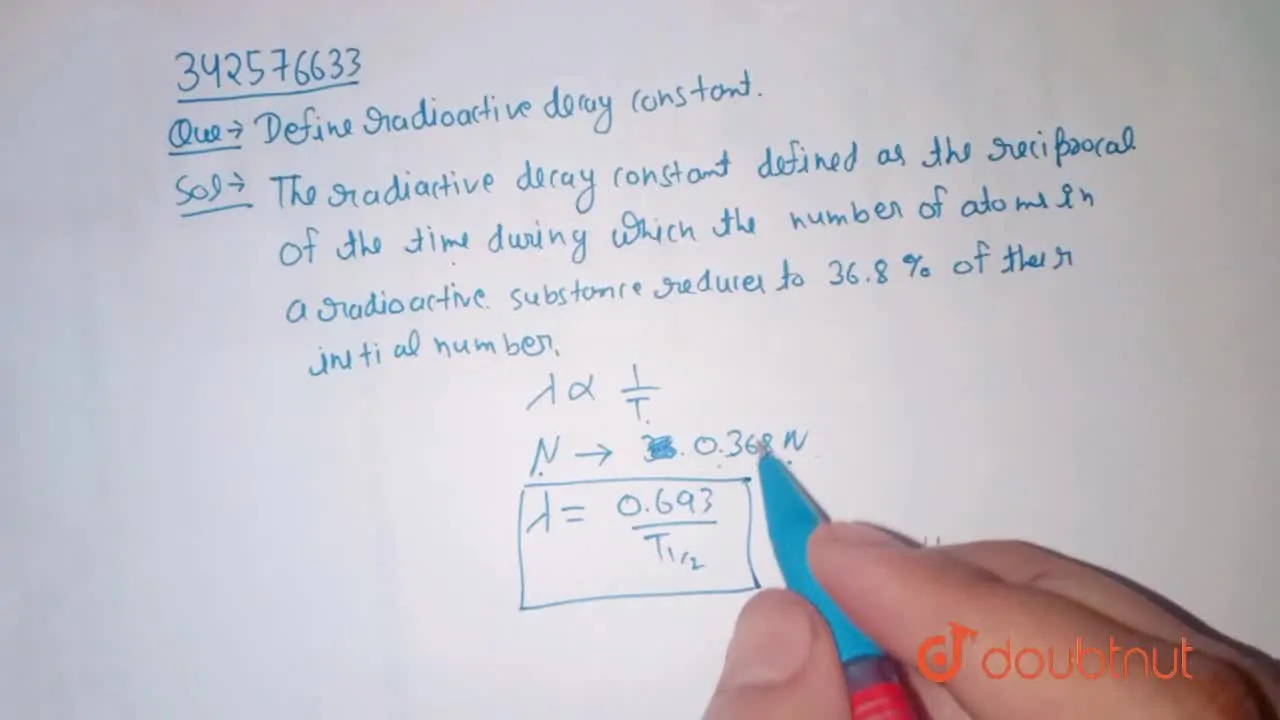 342576633
Que→ Define radioactive decay constant.
Sol→ The radiactive decay constant defined as the reciprocal
of the time during which the number of atoms in
a radioactive substance reduces to 36.8% of their
initial number.
λ ∝ 1/T
N → 0.368 N
λ = 0.693/T1/2
doubtnut